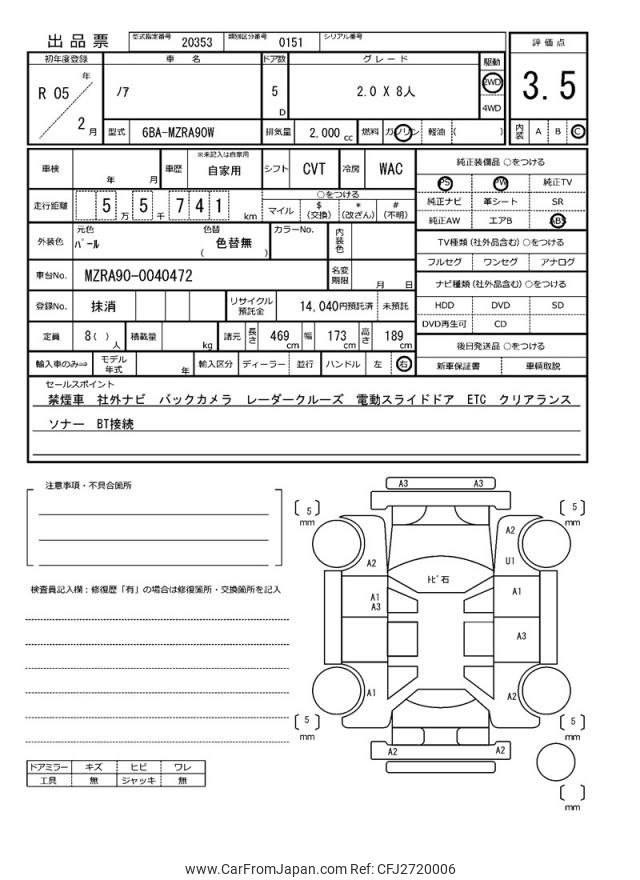 出品票 型式指定番号 20353 類別区分番号 0151 シリアル番号
評価点
3.5
内装 A B C
初年度登録 車名 ドア数 グレード 駆動
R 05 年 2 月 ノア 5 D 2.0 X 8人 2WD 4WD
型式 6BA-MZRA90W 排気量 2,000 cc 燃料 ガソリン 軽油 ( )
車検 年 月 車歴 ※未記入は自家用 自家用 シフト CVT 冷房 WAC
走行距離 5 万 5 千 7 4 1 km
○をつける
マイル $ (交換) * (改ざん) # (不明)
外装色 元色 パール 色替 色替無 ( ) カラーNo. 内装色
車台No. MZRA90-0040472 名変期限 月 日
登録No. 抹消 リサイクル預託金 14,040円預託済 未預託
定員 8( ) 人 積載量 kg 諸元 長さ 469 cm 幅 173 cm 高さ 189 cm
輸入車のみ⇒ モデル年式 年 輸入区分 ディーラー 並行 ハンドル 左 右
純正装備品 ○をつける
PS PW 純正TV
純正ナビ 革シート SR
純正AW エアB ABS
TV種類(社外品含む)○をつける
フルセグ ワンセグ アナログ
ナビ種類(社外品含む)○をつける
HDD DVD SD
DVD再生可 CD
後日発送品 ○をつける
新車保証書 車輌取説
セールスポイント
禁煙車 社外ナビ バックカメラ レーダークルーズ 電動スライドドア ETC クリアランス
ソナー BT接続
注意事項・不具合箇所
検査員記入欄:修復歴「有」の場合は修復箇所・交換箇所を記入
ドアミラー キズ ヒビ ワレ
工具 無 ジャッキ 無
A3 A3
[ 5 ] mm
[ 5 ] mm
A2
A2
U1
トビ石
A1
A3
A1
A3
A1
A2
[ 5 ] mm
[ 5 ] mm
A2 A2
[ ] mm
www.CarFromJapan.com Ref: CFJ2720006